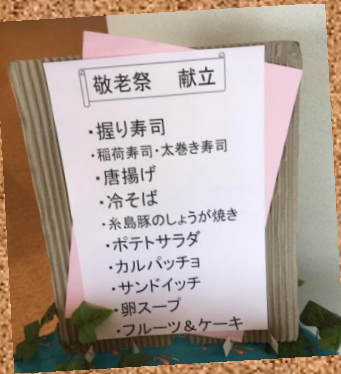 敬老祭　献立
・握り寿司
・稲荷寿司・太巻き寿司
・唐揚げ
・冷そば
・糸島豚のしょうが焼き
・ポテトサラダ
・カルパッチョ
・サンドイッチ
・卵スープ
・フルーツ＆ケーキ